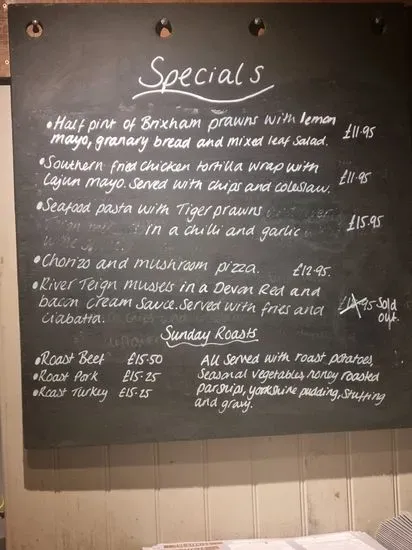 Specials
• Half pint of Brixham prawns with lemon
mayo, granary bread and mixed leaf salad. £11.95
• Southern fried chicken tortilla wrap with
Cajun mayo. Served with chips and coleslaw. £11.95
• Seafood pasta with Tiger prawns
in a chilli and garlic £15.95
• Chorizo and mushroom pizza. £12.95.
• River Teign mussels in a Devon Red and
bacon cream sauce. Served with fries and Sold
ciabatta. out.
Sunday Roasts
• Roast Beef £15.50 All served with roast potatoes,
• Roast Pork £15.25 seasonal vegetables, honey roasted
• Roast Turkey £15.25 parsnips, yorkshire pudding, stuffing
and gravy.